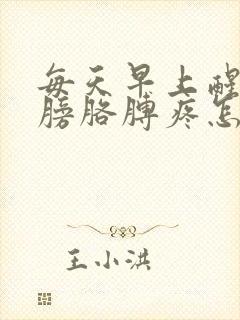 每天早上醒
膀胳膊疼怎
王小洪